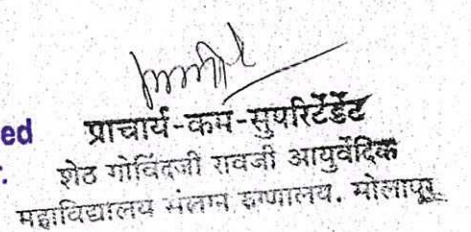 ed प्राचार्य-कम-सुपरिटेंडेंट
r. शेठ गोविंदजी रावजी आयुर्वेदिक
महाविद्यालय संलग्न रुग्णालय. सोलापूर